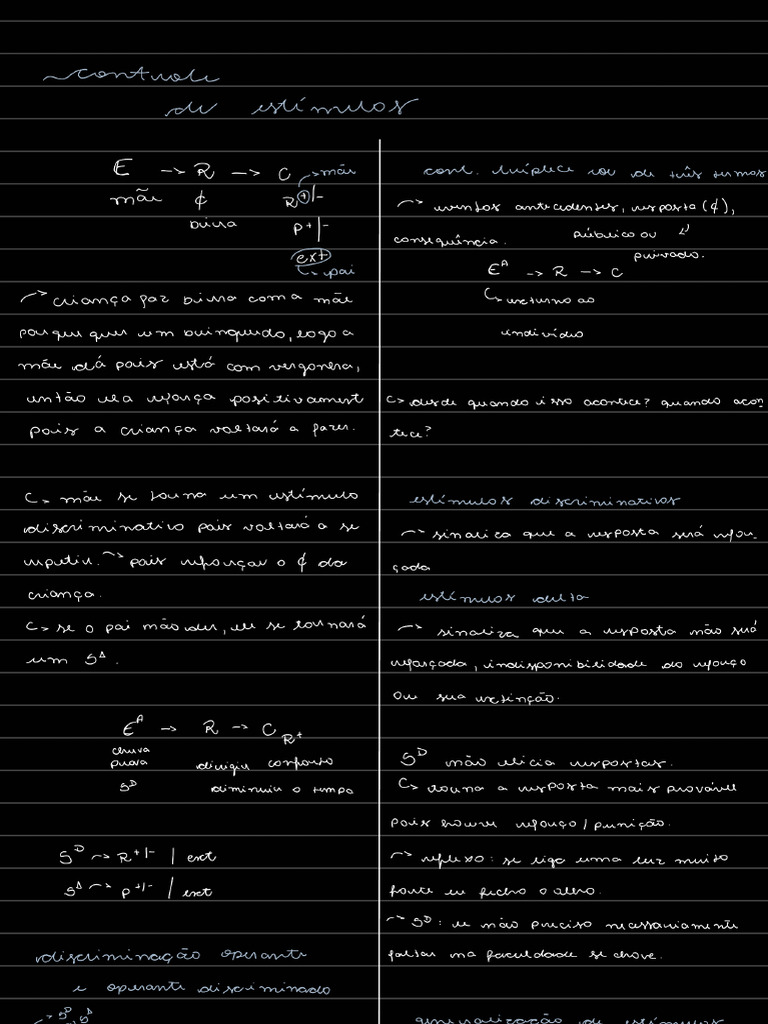 controle
de estímulos
E -> R -> C -> mãe
mãe ¢ R+/-
birra P+/-
ext
-> pai
-> criança faz birra com a mãe
porque quer um brinquedo, logo a
mãe dá pois está com vergonha,
então ela reforça positivament
pois a criança voltará a fazer.
-> mãe se torna um estímulo
discriminativo pois voltará a se
repetir. -> pois reforçar o ¢ da
criança.
-> se o pai não der, ele se tornará
um SΔ.
Eᴬ -> R -> C R+
chuva
prova dirigir conforto
Sᴰ diminuir o tempo
Sᴰ -> R+/- / ext
SΔ -> P+/- / ext
discriminação operante
e operante discriminado
-> Sᴰ SΔ
cont. tríplice ou de três termos
-> eventos antecedentes, resposta (¢),
consequência. público ou
privado.
Eᴬ -> R -> C
-> externo ao
indivídio
-> desde quando isso acontece? quando acon-
tece?
estímulos discriminativos
-> sinaliza que a resposta será refor-
çada
estímulos delta
-> sinaliza que a resposta não será
reforçada, indisponibilidade do reforço
ou sua extinção.
Sᴰ não elicia respostas.
-> torna a resposta mais provável
pois houve reforço/punição.
-> reflexo: se liga uma luz muito
forte eu fecho o olho.
-> Sᴰ: eu não preciso necessariamente
faltar na faculdade se chove.
generalização de estímulos